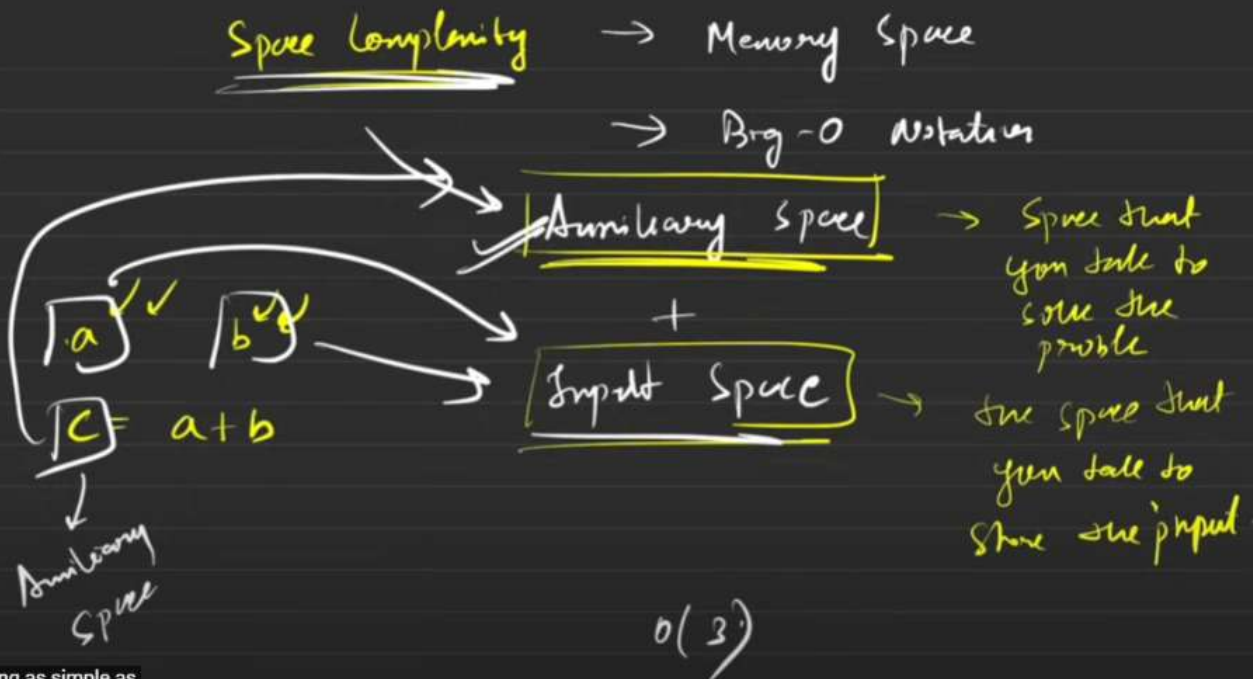 Space Complexity → Memory Space
→ Big-O Notation
Auxiliary Space → Space that
you take to
solve the
proble
+
a b
Input Space → the space that
you take to
store the input
c = a+b
Auxiliary
Space
O(3)
ng as simple as